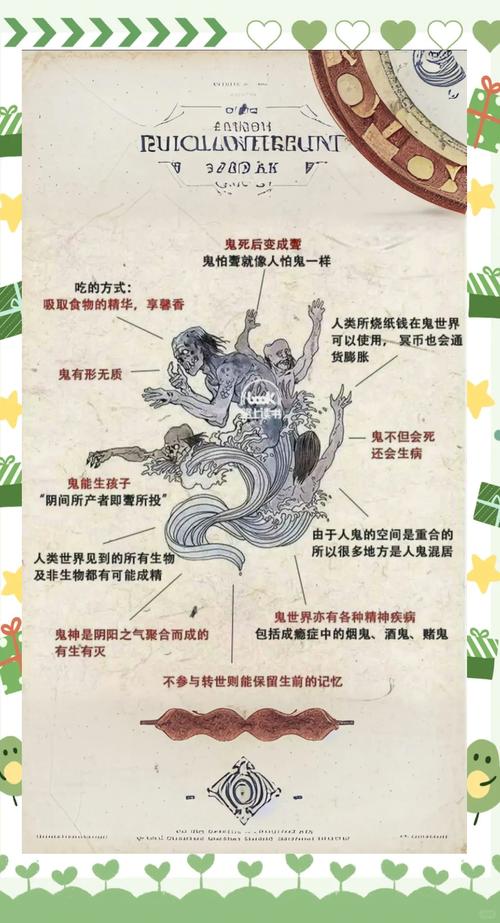 鬼死后变成聻
鬼怕聻就像人怕鬼一样
吃的方式:
吸取食物的精华，享馨香
人类所烧纸钱在鬼世界
可以使用， 冥币也会通
货膨胀
鬼有形无质
鬼不但会死
还会生病
鬼能生孩子
“阴间所产者即聻所投”
由于人鬼的空间是重合的
所以很多地方是人鬼混居
人类世界见到的所有生物
及非生物都有可能成精
鬼世界亦有各种精神疾病
包括成瘾症中的烟鬼、酒鬼、赌鬼
鬼神是阴阳之气聚合而成的
有生有灭
不参与转世则能保留生前的记忆